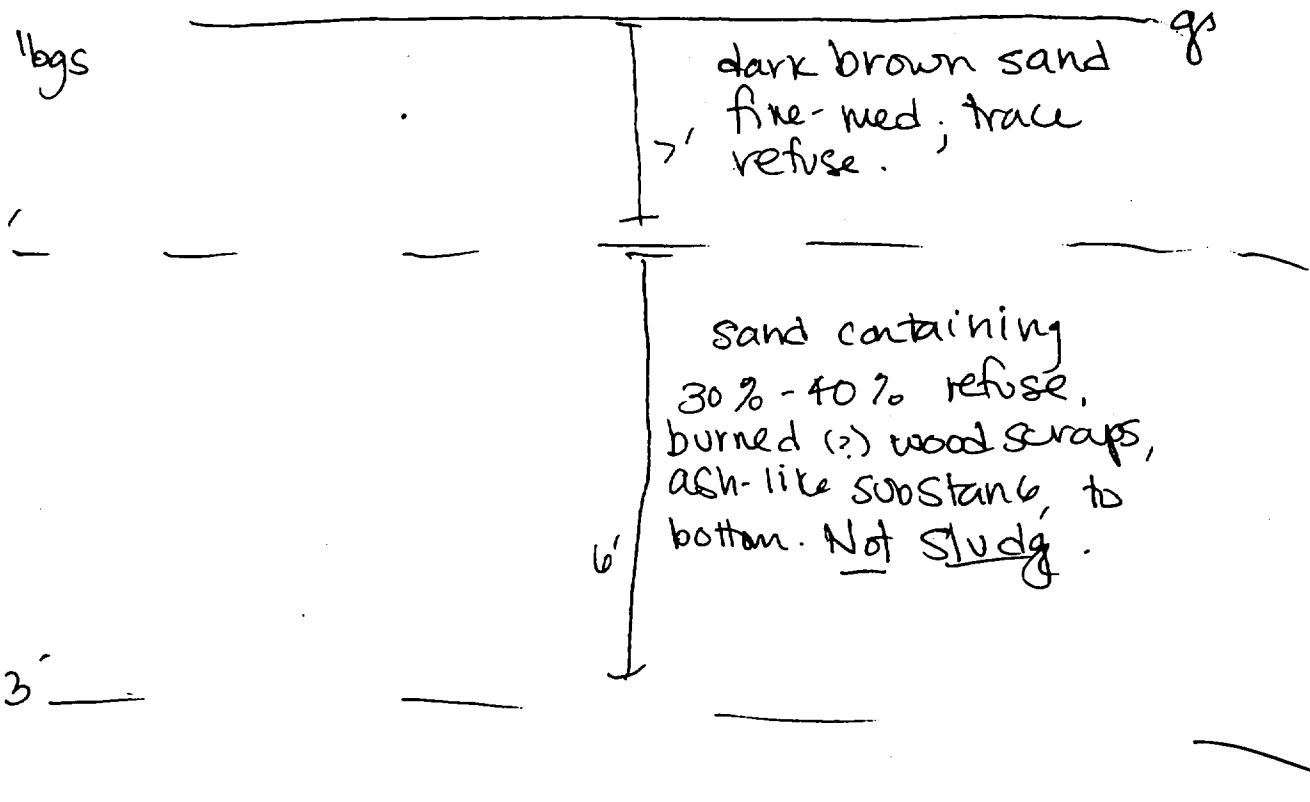 'bgs
gs
dark brown sand
fine-med; trace
7' refuse.
'
sand containing
30%-40% refuse,
burned (?) wood scraps,
ash-like substanc, to
6' bottom. Not Sludg.
3'